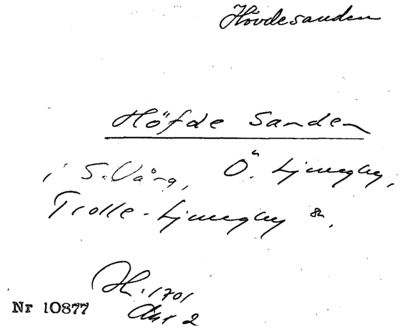 Hövdesanden
Höfde Sanden
i S. Vång, Ö. Ljungby,
Trolle-Ljungby sn,
H. 1701
Akt 2
Nr 10877